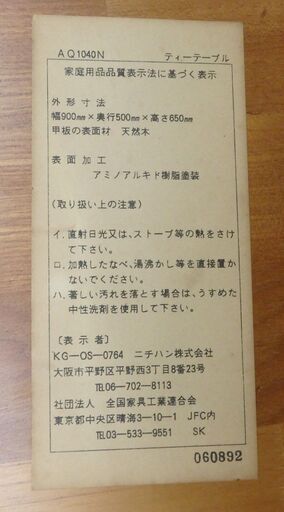 AQ1040N　ティーテーブル
家庭用品品質表示法に基づく表示
外形寸法
幅900mm×奥行500mm×高さ650mm
甲板の表面材　天然木
表面加工
アミノアルキド樹脂塗装
(取り扱い上の注意)
イ.直射日光又は、ストーブ等の熱をさけ
て下さい。
ロ.加熱したなべ、湯沸かし等を直接置か
ないでください。
ハ.著しい汚れを落とす場合は、うすめた
中性洗剤を使用して下さい。
〔表示者〕
KG-OS-0764　ニチハン株式会社
大阪市平野区平野西3丁目8番23号
TEL06-702-8113
社団法人　全国家具工業連合会
東京都中央区晴海3-10-1　JFC内
TEL03-533-9551　SK
060892